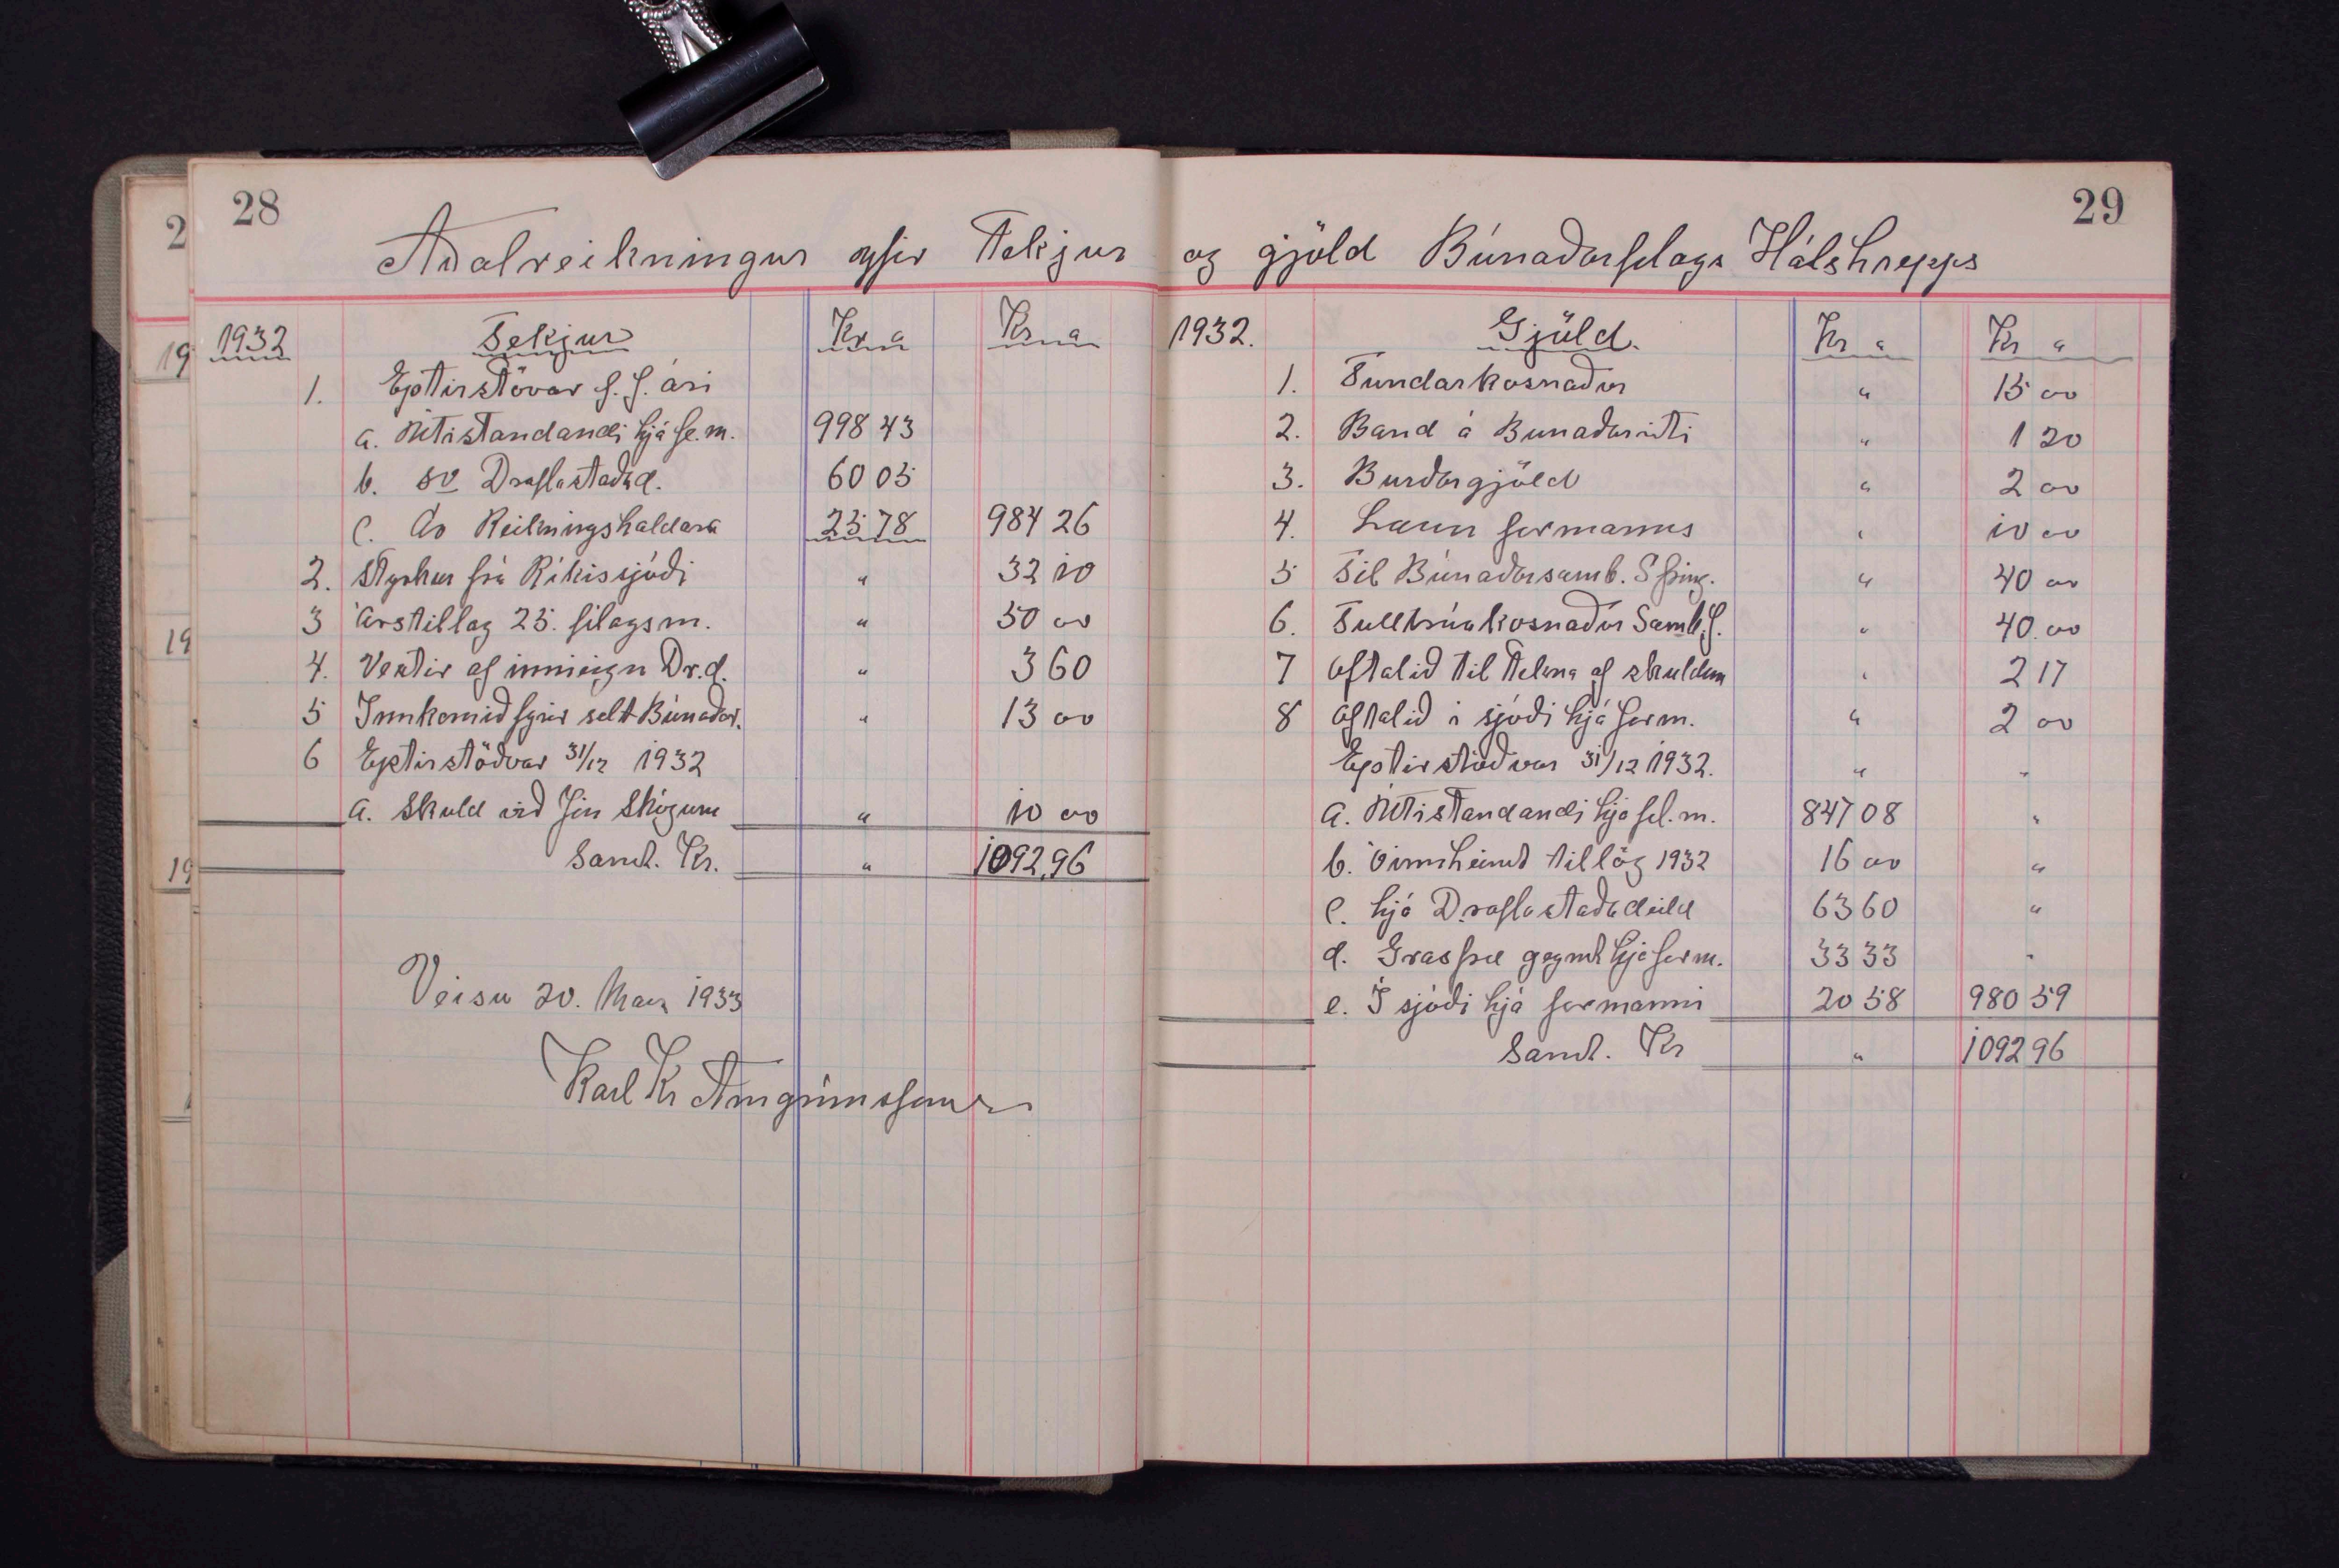 28
29
Aðalreikningur yfir Tekjur og gjöld Búnaðarfélags Hálshrepps
1932 Tekjur Kr a Kr a
1. Eptirstöðvar f. f. ári
a. Útistandandi hjá fé.m. 998 43
b. Do Draflastaðad. 60 05
c. Do Reikningshaldara 25 78 984 26
2. Styrkur frá Ríkissjóði " 32 10
3 Árstillag 25. félagsm. " 50 00
4. Vextir af inneign Dr.d. " 3 60
5 Innkomið fyrir selt Búnaðar. " 13 00
6 Eptirstöðvar 31/12 1932
a. Skuld við Skógum " 10 00
Samt. Kr. " 1092,96
Veisu 20. Mars 1933
Karl Kr Arngrímsson
1932. Gjöld. Kr a Kr a
1. Fundarkosnaður " 15 00
2. Band á Bunaðarriti " 1 20
3. Burðargjöld " 2 00
4. Laun formanns " 10 00
5 Til Búnaðarsamb. S Þing. " 40 00
6. Fulltrúakosnaður Samb.f. " 40.00
7 Oftalið til tekna af skuldum " 2 17
8 Oftalið í sjóði hjá form. " 2 00
Eptirstöðvar 31/12 1932. " "
a. Útistandandi hjá fél.m. 847 08 "
b. Óinnheimt tillög 1932 16 00 "
c. hjá Draflastaðadeild 63 60 "
d. Grasfræ geymt hjá form. 33 33 "
e. Í sjóði hjá formanni 20 58 980 59
Samt. Kr " 1092 96